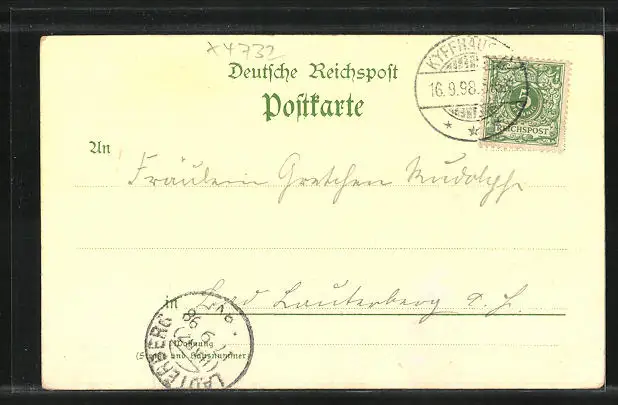 x4732
Deutsche Reichspost
Postkarte
KYFFHÄUS
16.9.98.
5
REICHSPOST
An
Fräulein Gretchen Rudolph
in Bad Lauterberg a. H.
LAUTERBERG
Wohnung
(Straße und Hausnummer)